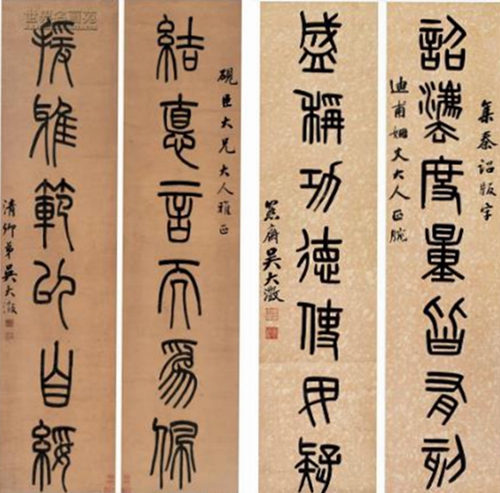 集秦詔版字
迪甫姻丈大人正腕
詔灋度量皆有刻
盛稱功德使毋疑
愙齋吴大澂
硯臣大兄大人雅正
結惪言而為佩
援雅範以自綏
清卿弟吴大澂